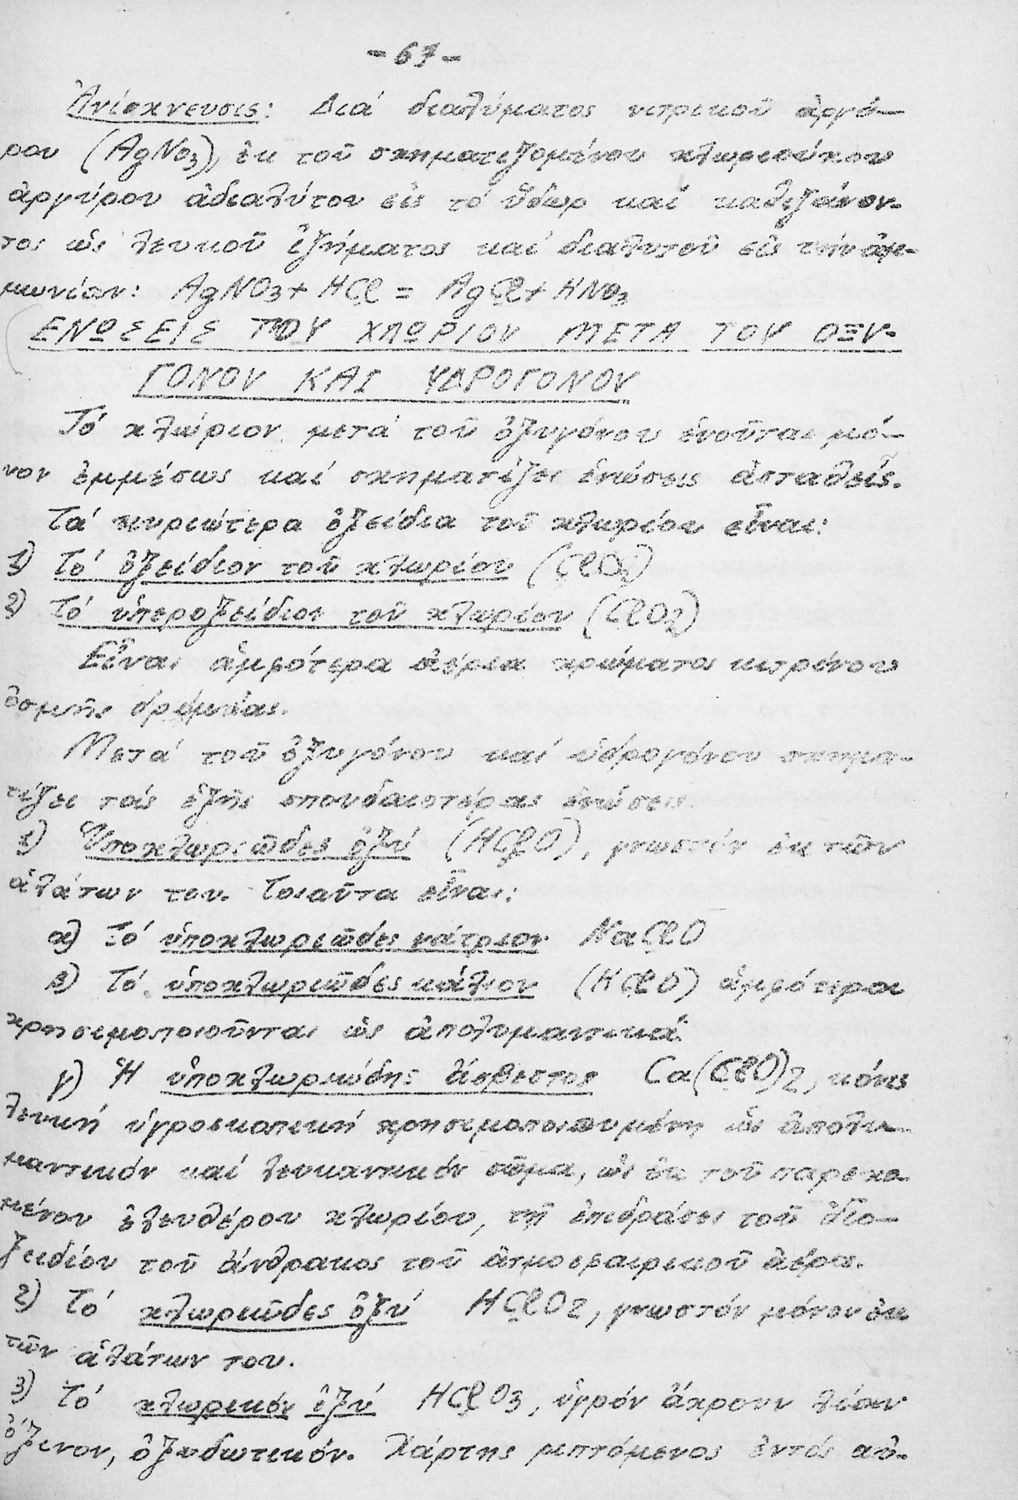 - 67 -
Ἀνίχνευσις: Διά διαλύματος νιτρικοῦ ἀργύ-
ρου (AgNO3), ἐκ τοῦ σχηματιζομένου χλωριούχου
ἀργύρου ἀδιαλύτου εἰς τό ὕδωρ καί καθιζάνον-
τος ὡς λευκοῦ ἱζήματος καί διαλυτοῦ εἰς τήν ἀμ-
μωνίαν: AgNO3 + HCl = AgCl + HNO3
ΕΝΩΣΕΙΣ ΤΟΥ ΧΛΩΡΙΟΥ ΜΕΤΑ ΤΟΥ ΟΞΥ-
ΓΟΝΟΥ ΚΑΙ ΥΔΡΟΓΟΝΟΥ
Τό χλώριον μετά τοῦ ὀξυγόνου ἑνοῦται μό-
νον ἐμμέσως καί σχηματίζει ἑνώσεις ἀσταθεῖς.
Τά κυριώτερα ὀξείδια τοῦ χλωρίου εἶναι:
1) Τό ὀξείδιον τοῦ χλωρίου (ClO2)
2) Τό ὑπεροξείδιον τοῦ χλωρίου (ClO2)
Εἶναι ἀμφότερα ἀέρια χρώματος κιτρίνου
ὀσμῆς δριμείας.
Μετά τοῦ ὀξυγόνου καί ὑδρογόνου σχημα-
τίζει τάς ἑξῆς σπουδαιοτέρας ἑνώσεις
1) Ὑποχλωριῶδες ὀξύ (HClO), γνωστόν ἐκ τῶν
ἁλάτων του. Τοιαῦτα εἶναι:
α) Τό ὑποχλωριῶδες νάτριον NaClO
β) Τό ὑποχλωριῶδες κάλιον (KClO) ἀμφότερα
χρησιμοποιοῦνται ὡς ἀπολυμαντικά.
γ) Ἡ ὑποχλωριώδης ἄσβεστος Ca(ClO)2, κόνις
λευκή ὑγροσκοπική χρησιμοποιουμένη ὡς ἀπολυ-
μαντικόν καί λευκαντικόν σῶμα, ὡς ἐκ τοῦ παρεχο-
μένου ἐλευθέρου χλωρίου, τῇ ἐπιδράσει τοῦ διο-
ξειδίου τοῦ ἄνθρακος τοῦ ἀτμοσφαιρικοῦ ἀέρος.
2) Τό χλωριῶδες ὀξύ HClO2, γνωστόν μόνον ἐκ
τῶν ἁλάτων του.
3) Τό χλωρικόν ὀξύ HClO3, ὑγρόν ἄχρουν λίαν
ὄξινον, ὀξυδωτικόν. Χάρτης ριπτόμενος ἐντός αὐ-